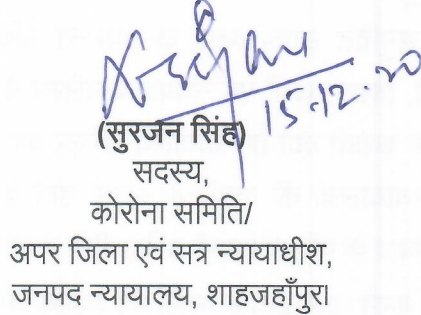 15-12-20
(सुरजन सिंह)
सदस्य,
कोरोना समिति/
अपर जिला एवं सत्र न्यायाधीश,
जनपद न्यायालय, शाहजहाँपुर।